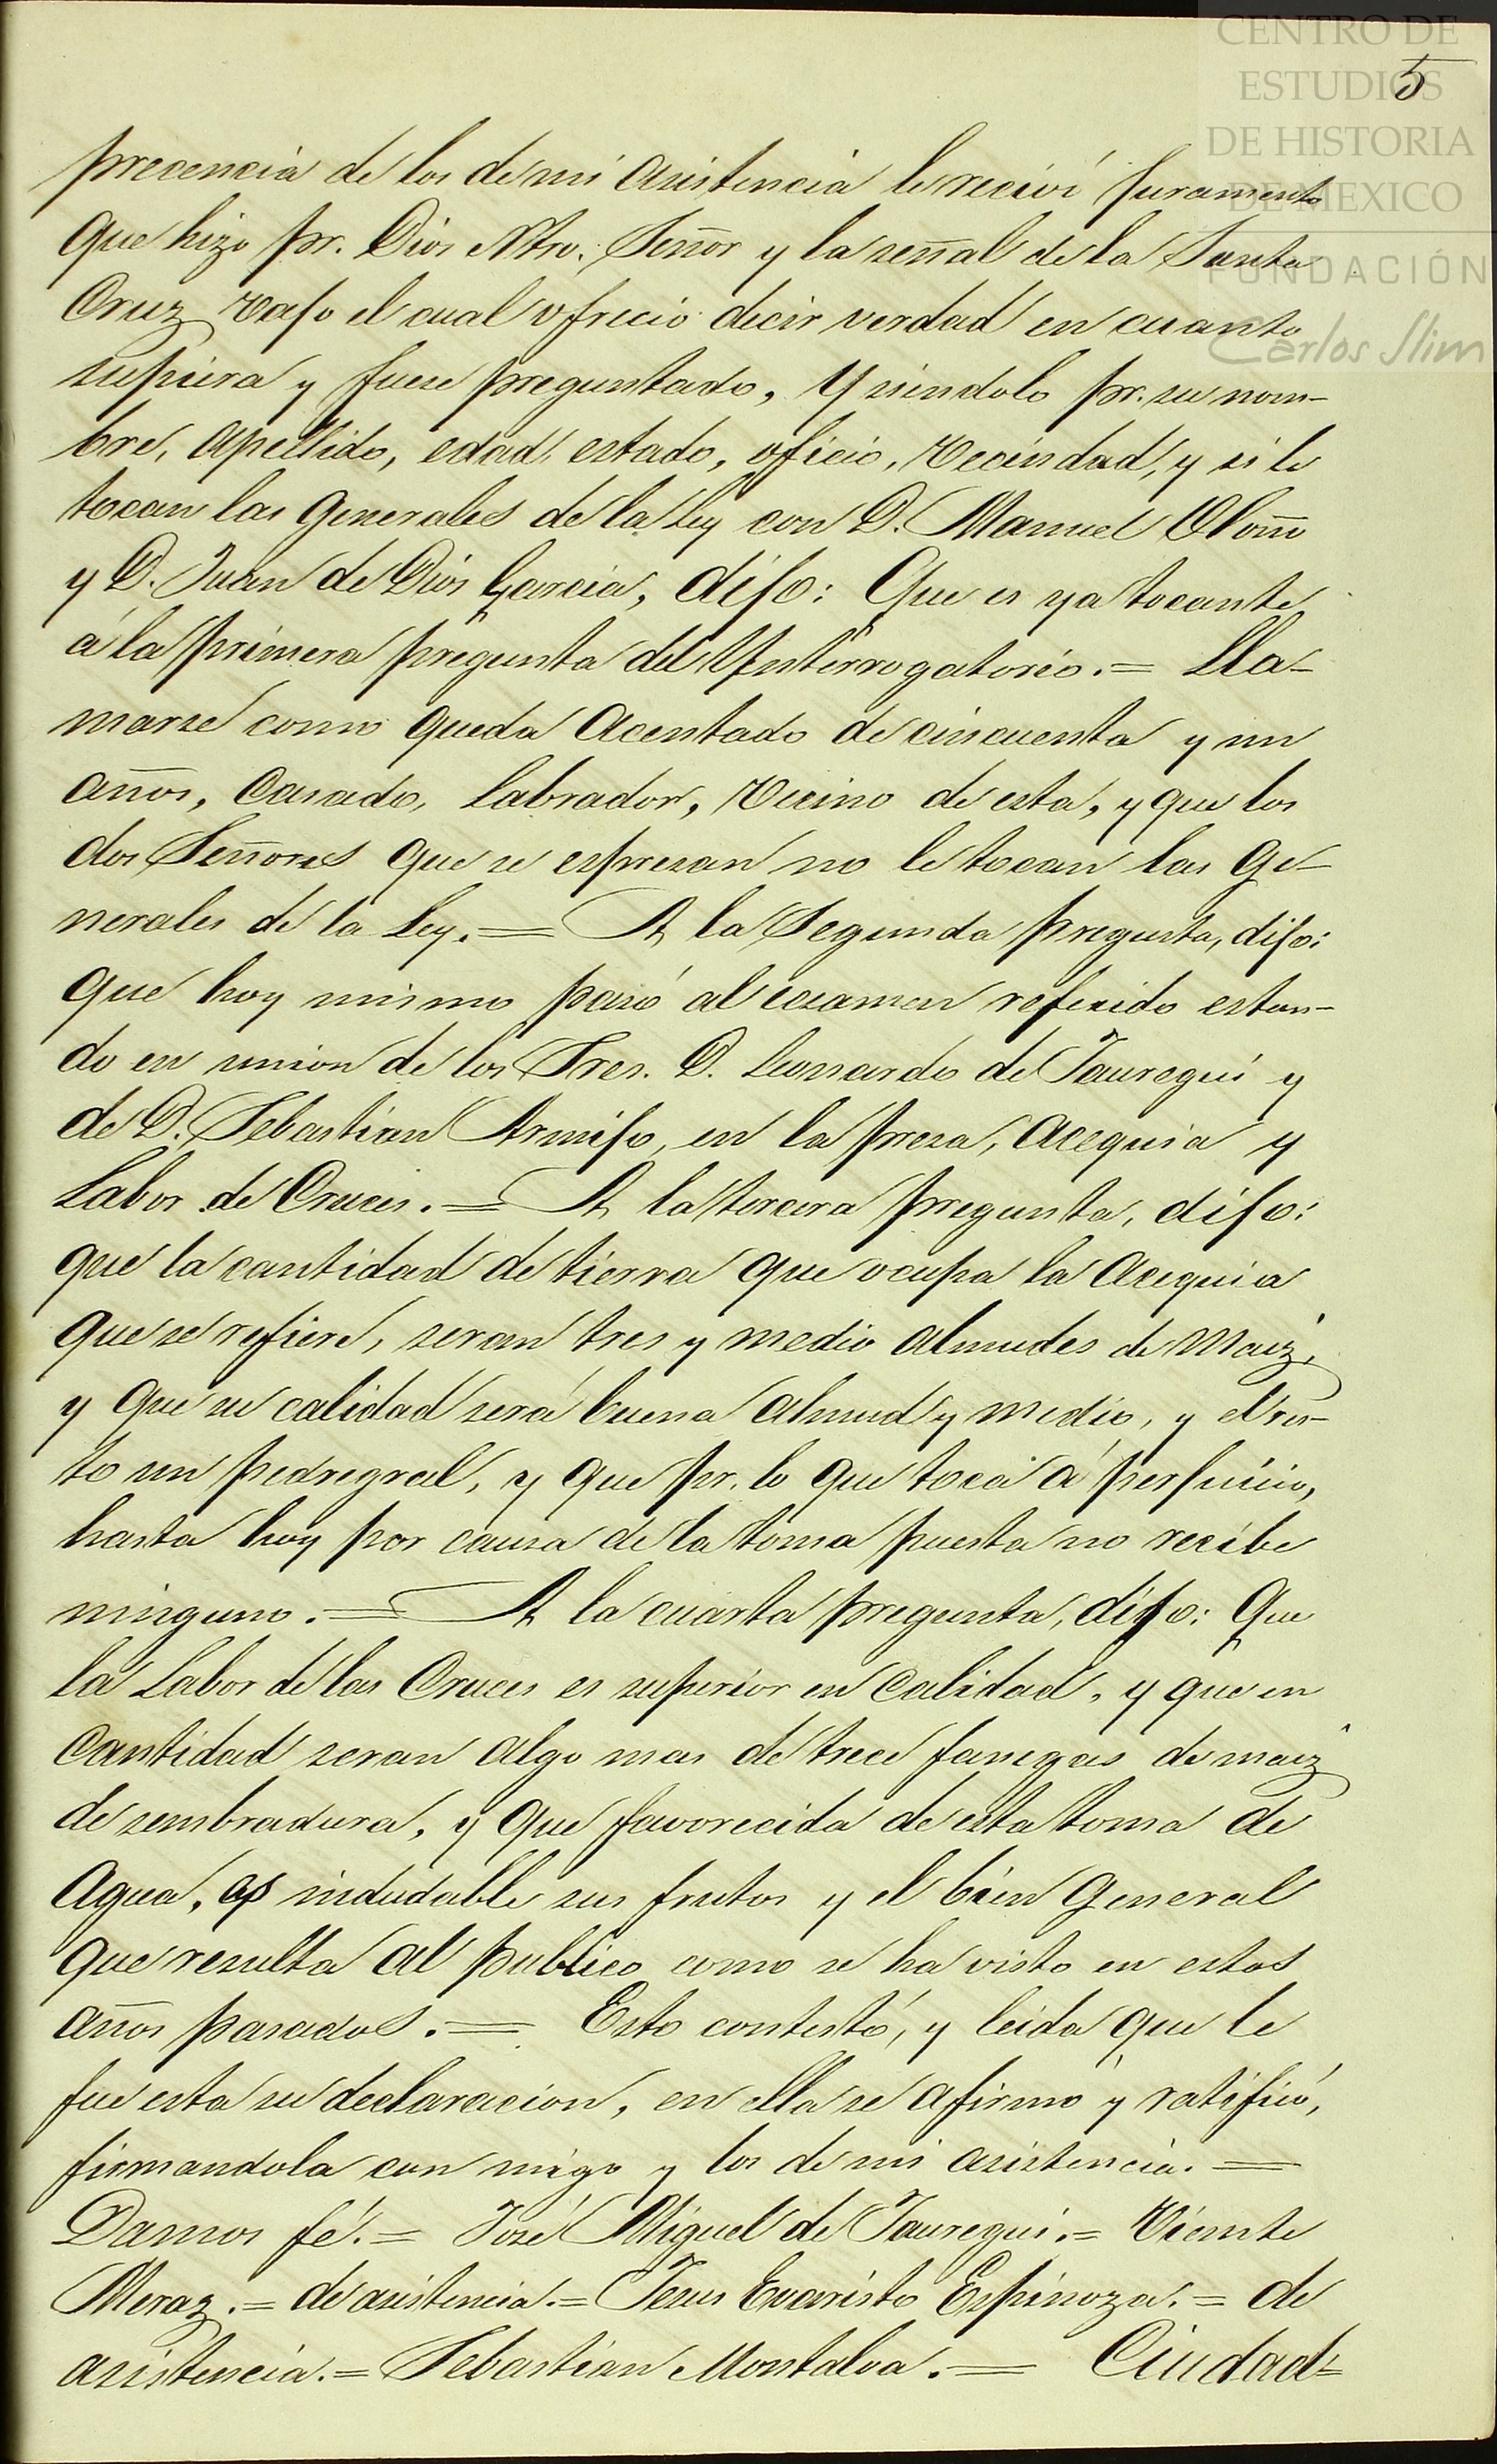 CENTRO DE
ESTUDIOS
DE HISTORIA
DE MEXICO
FUNDACIÓN
Carlos Slim
5
precencia de los de mi asistencia le reciví juramento
que hizo pr. Dios Ntro. Señor y la señal de la Santa
Cruz vajo el cual ofrecio decir verdad en cuanto
supiera y fuese preguntado, Y siendolo pr. su nom-
bre, apellido, edad, estado, oficio, vecindad, y si le
tocan las generales de la Ley con D. Manuel
y D. Juan de Dios Garcia, dijo: Que es ya tocante
á la primera pregunta del Ynterrogatorio.= Lla-
marse como queda acentado de cincuenta y un
años, casado, labrador, vecino de esta, y que los
dos Señores que se espresan no le tocan las ge-
nerales de la Ley.= A la Segunda pregunta, dijo:
que hoy mismo pasó al ecsamen referido estan-
do en union de los Sres. D. Leonardo de Jauregui y
de D. Sebastian Armijo, en la presa, acequia y
Labor de Cruces.= A la tercera pregunta, dijo:
que la cantidad de tierra que ocupa la acequia
que se refiere, seran tres y medio almudes de maiz,
y que su calidad será buena almud y medio, y el res-
to un pedregral, y que pr. lo que toca á perjuicio,
hasta hoy por causa de la toma puesta no recibe
ninguno.= A la cuarta pregunta, dijo: Que
la Labor de las Cruces es superior en calidad, y que en
cantidad seran algo mas de trece fanegas de maiz
de sembradura, y que favorecida de esta toma de
agua, es indudable sus frutos y el bien general
que resulta al publico como se ha visto en estos
años pasados.= Esto contestó, y leida que le
fue esta su declaracion, en ella se afirmo y ratificó,
firmandola con migo y los de mi asistencia.=
Damos fé.= José Miguel de Jauregui.= Vicente
Meraz.= de asistencia.= Jesus Evaristo Espinoza.= de
asistencia.= Sebastian Montalva.= Ciudad=